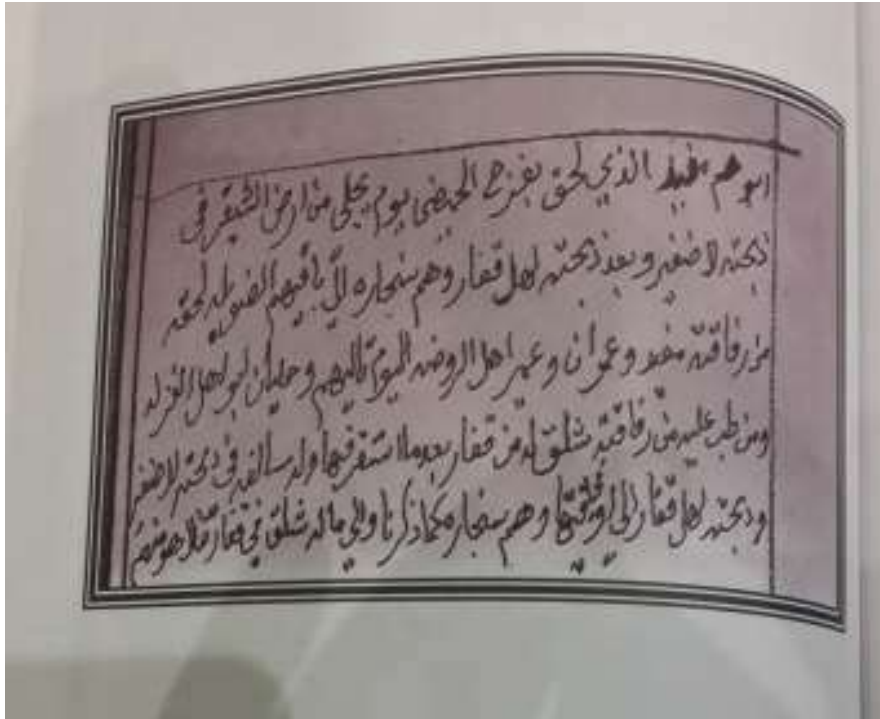 ابوهم مفيد الذي لحق بفزح الحيضى يوم يجلى من ارض الشيقر في
ذبحته لاضغير وبعد ذبحته لهل قفار وهم سنجاره الي باقيهم الضويلد لحقه
من رفاقته مفيد وعمران وعمير اهل الروضه اليوم تاليهم وحليان ابو لهل
ومن طب عليه من رفاقته شلق له من قفار بعد ما استقر فيها وله سالفه في ذبحته لاضغير
وذبحته لهل قفار الي وهم سنجاره كما ذكرنا والي ماله شلق في قفار